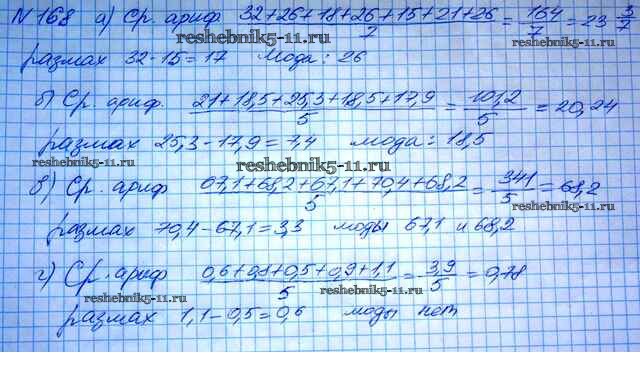 № 168 а) Ср. ариф 32+26+18+26+15+21+26/7 = 164/7 = 23 3/7
reshebnik5-11.ru reshebnik5-11.ru
размах 32-15=17 Мода: 26
б) Ср. ариф. 21+18,5+25,3+18,5+17,9/5 = 101,2/5 = 20,24
размах 25,3-17,9=7,4 мода: 18,5
reshebnik5-11.ru reshebnik5-11.ru reshebnik5-11.ru
в) Ср. ариф 67,1+68,2+67,1+70,4+68,2/5 = 341/5 = 68,2
размах 70,4-67,1=3,3 моды 67,1 и 68,2
г) Ср. ариф 0,6+0,8+0,5+0,9+1,1/5 = 3,9/5 = 0,78
reshebnik5-11.ru reshebnik5-11.ru
размах 1,1-0,5=0,6 моды нет